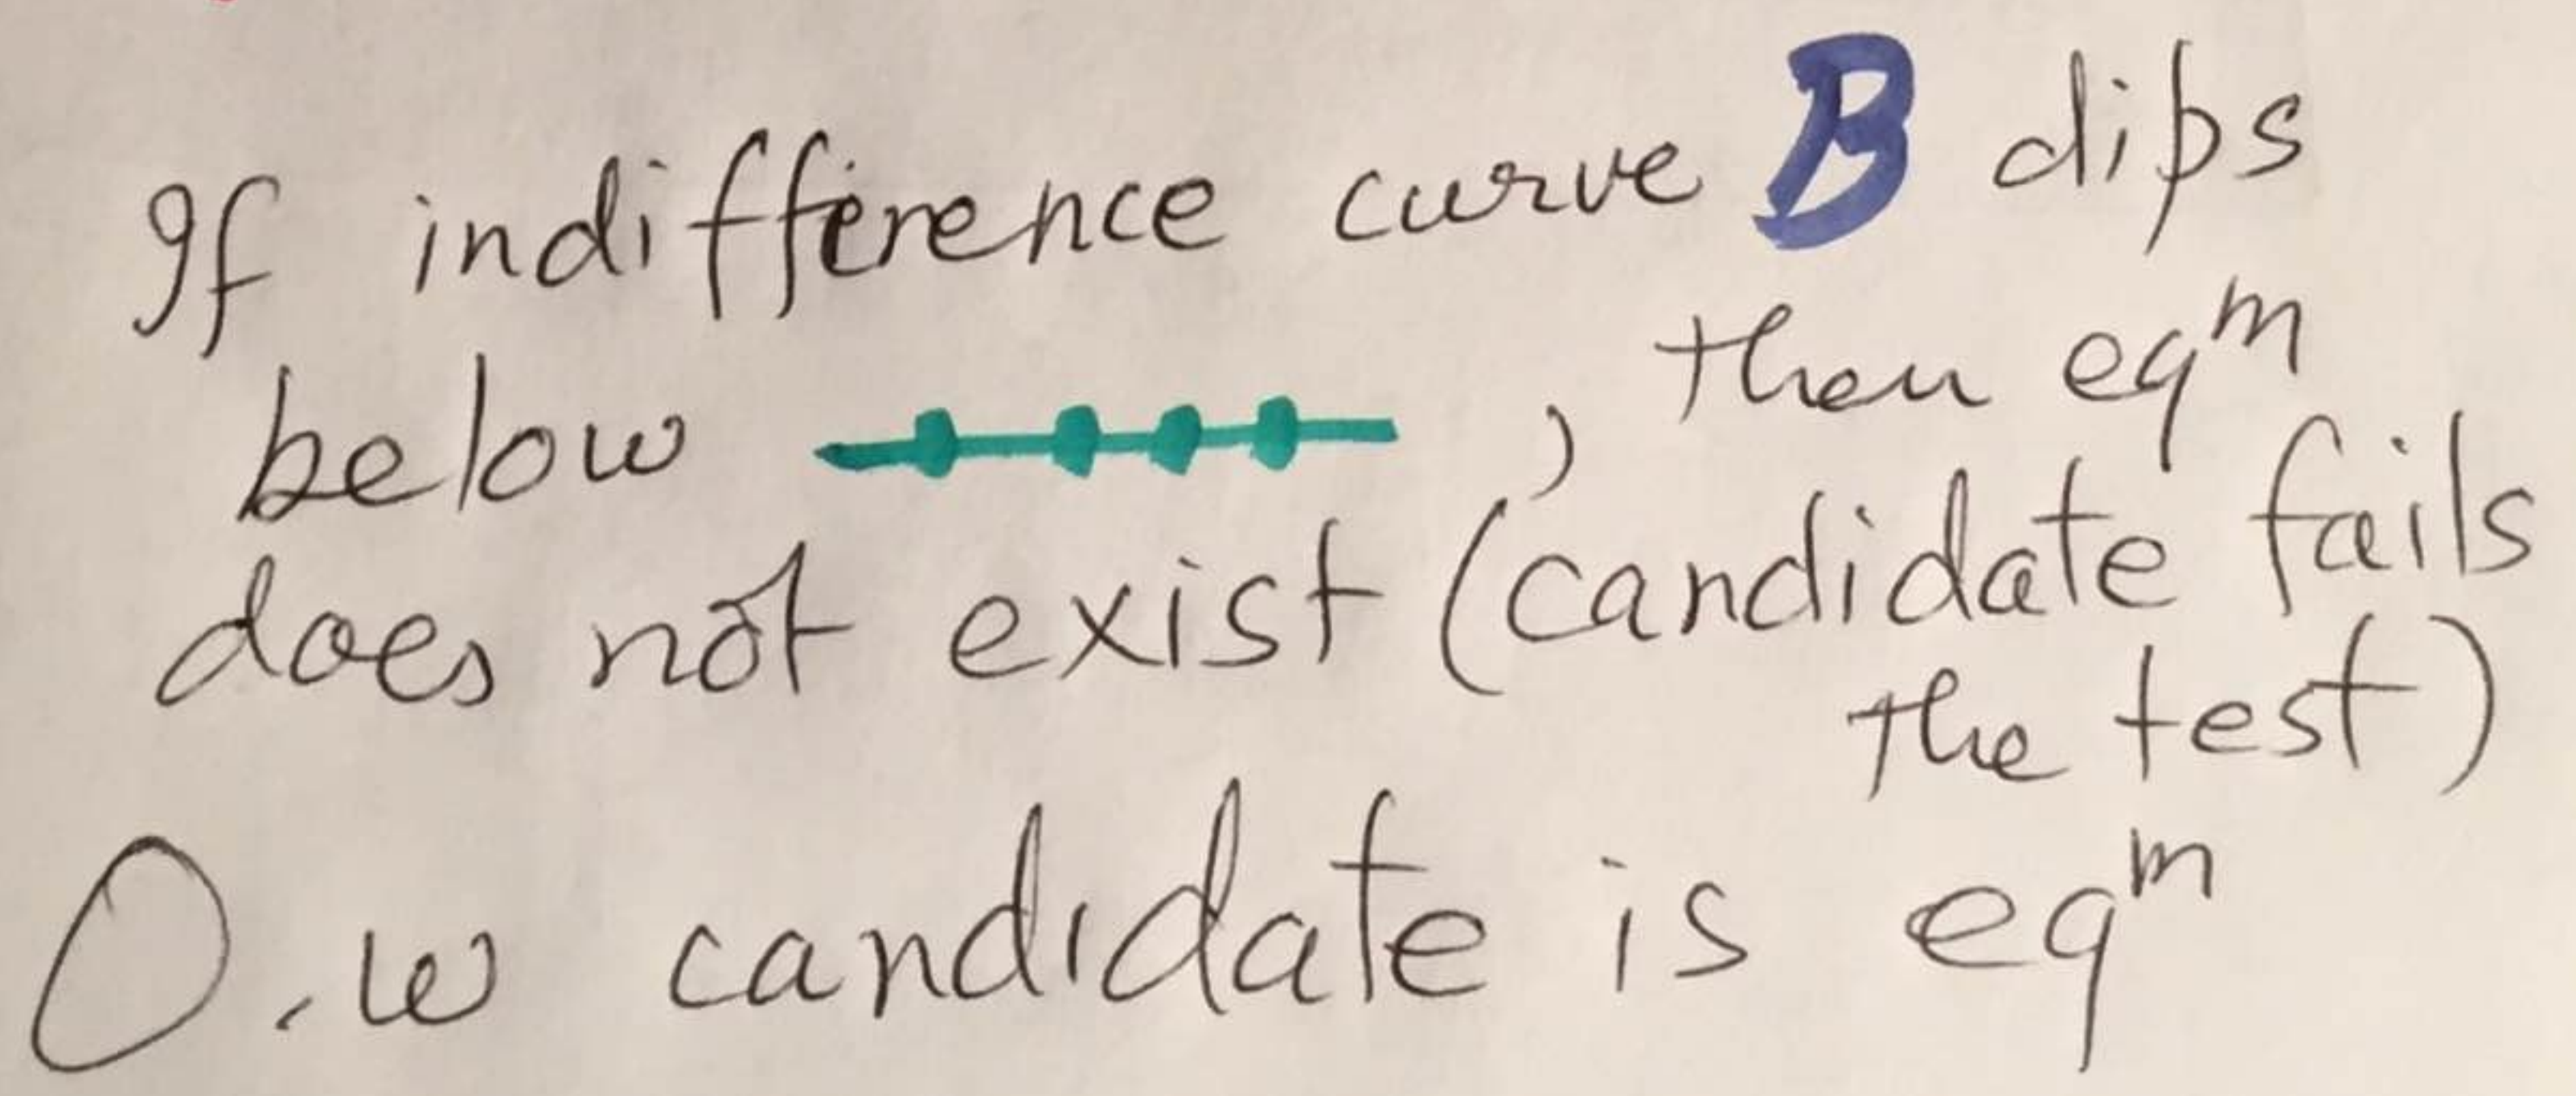 If indifference curve B dips
below , then eqᵐ
does not exist (candidate fails
the test)
O.w candidate is eqᵐ